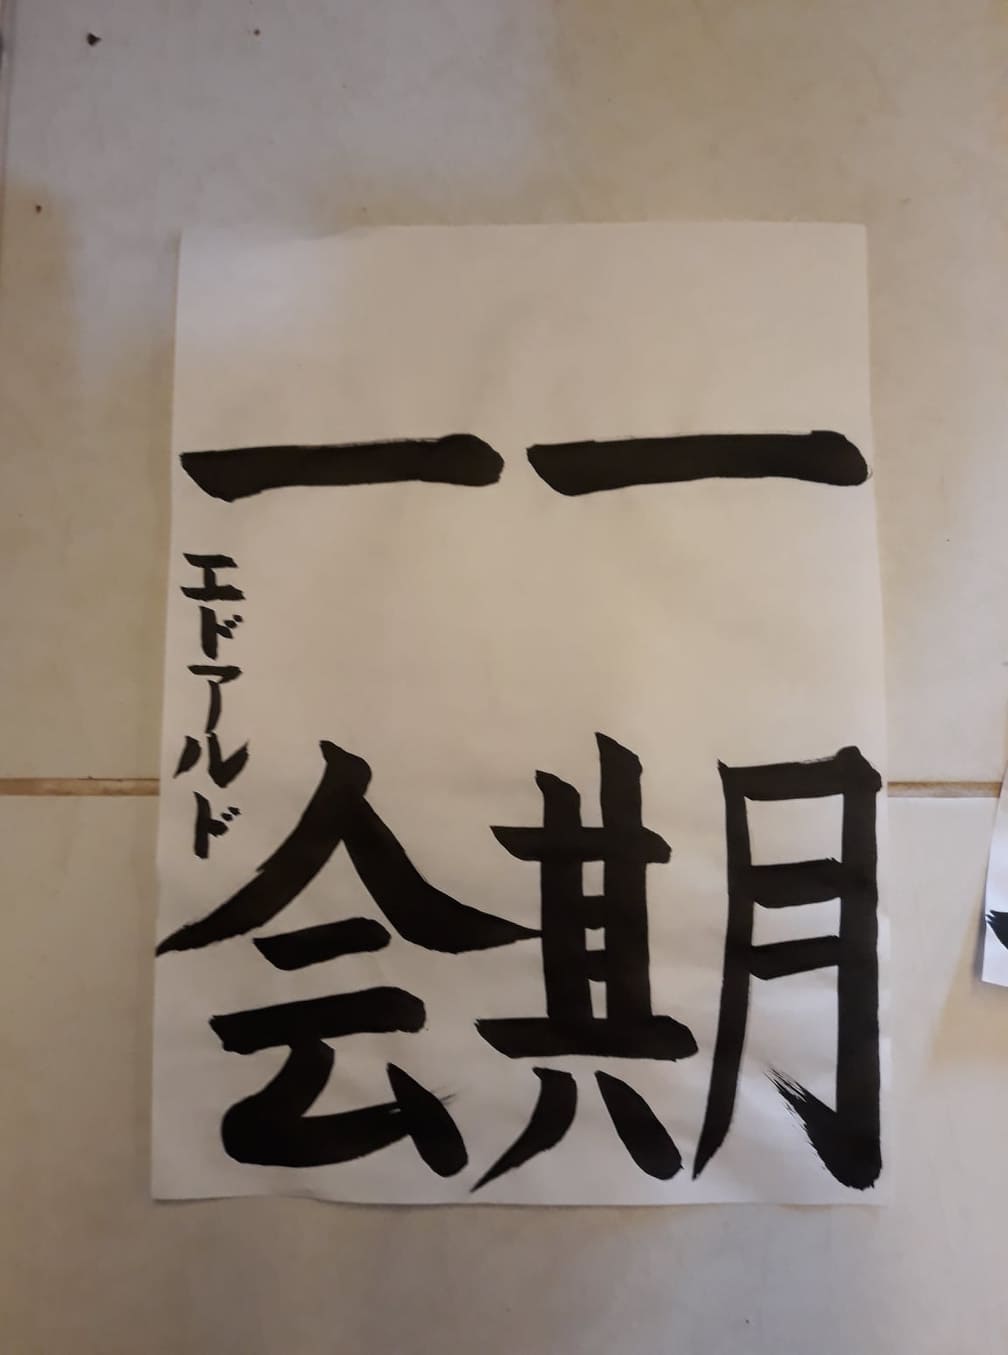 一期
一会
エドアルド